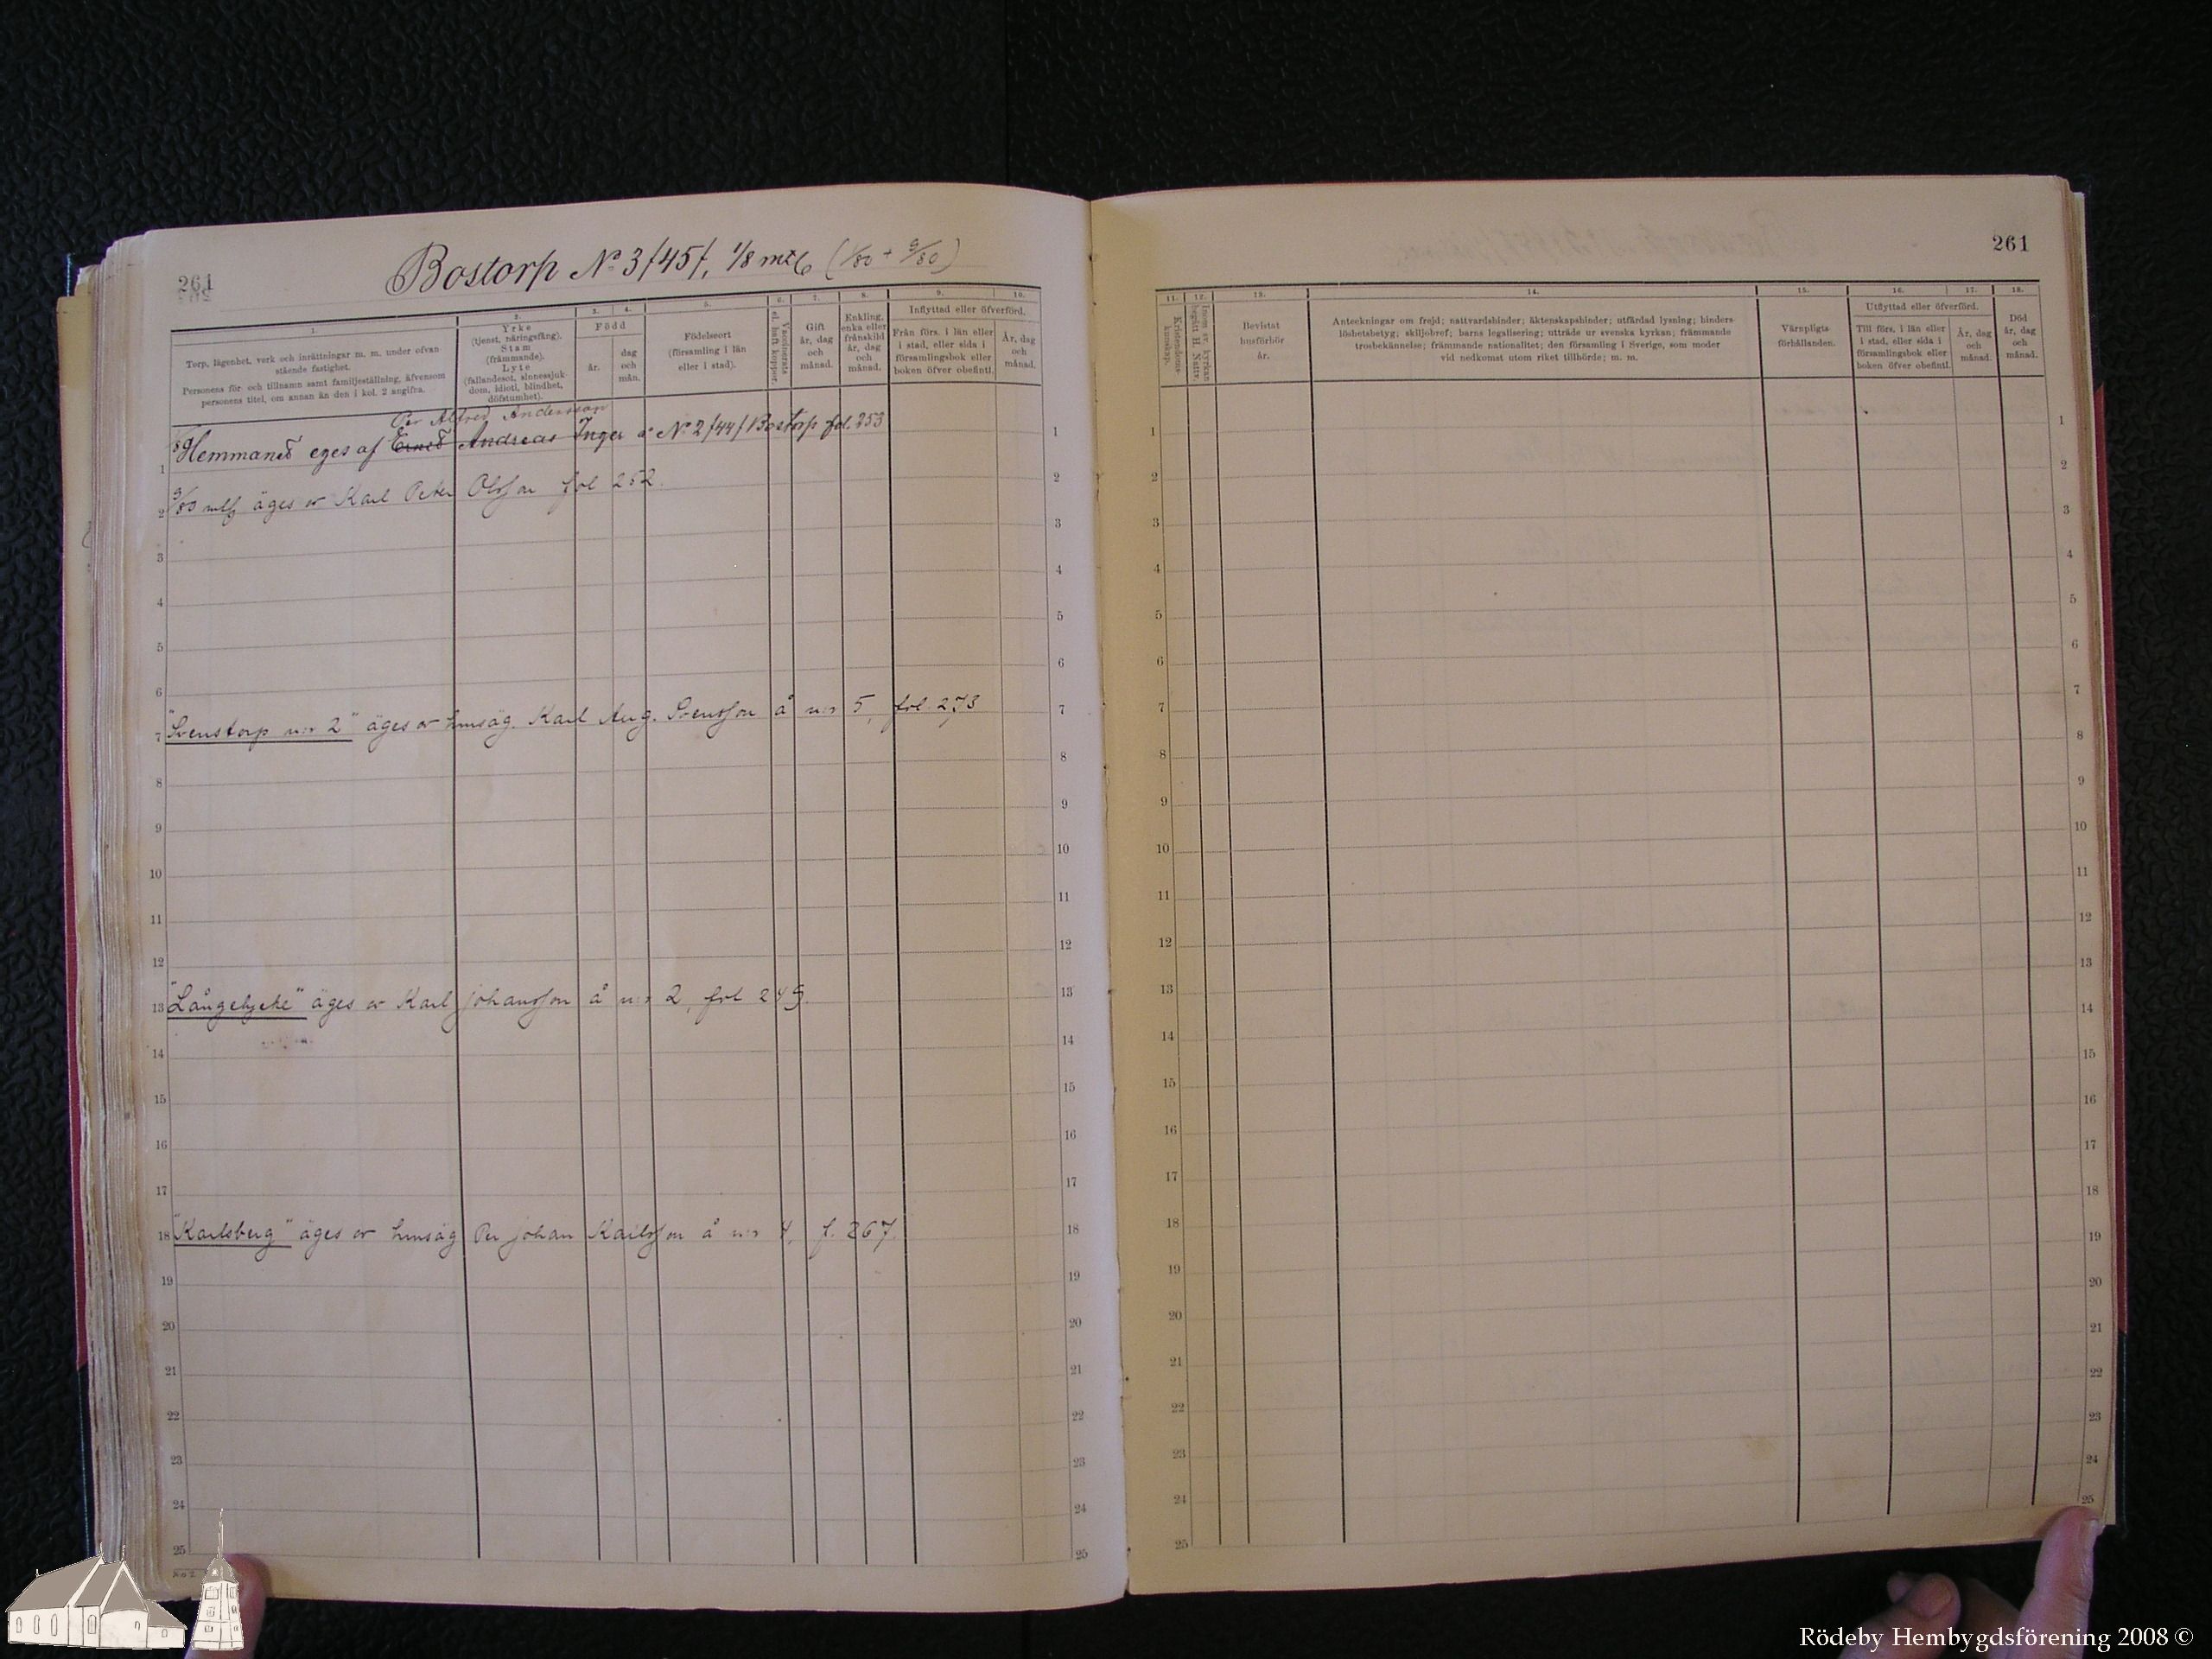 261
Bostorp No 3/45/, 1/8 mtl (1/80 + 9/80)
1.
2.
3.
4.
5.
6.
7.
8.
9.
10.
Torp, lägenhet, verk och inrättningar m. m. under ofvan
stående fastighet.
Personens för- och tillnamn samt familjeställning, äfvensom
personens titel, om annan än den i kol. 2 angifna.
Yrke
(tjenst, näringsfång).
Stam
(främmande).
Lyte
(fallandesot, sinnessjuk-
dom, idioti, blindhet,
döfstumhet).
Född
år.
dag
och
mån.
Födelseort
(församling i län
eller i stad).
Vaccinerats
el. haft koppor.
Gift
år, dag
och
månad.
Enkling,
enka eller
frånskild
år, dag
och
månad.
Inflyttad eller öfverförd.
Från förs. i län eller
i stad, eller sida i
församlingsbok eller
boken öfver obefintl.
År, dag
och
månad.
Per Alfred Andersson
1 Hemmanet eges af Andreas Inger å No 2/44/ Bostorp fol. 253 1
2 9/80 mtl äges av Karl Peter Olsson fol 252. 2
3 3
4 4
5 5
6 6
7 "Svenstorp n:r 2" äges av hmsäg. Karl Aug. Svensson å n:r 5, fol. 273 7
8 8
9 9
10 10
11 11
12 12
13 "Långehjche" äges av Karl Johansson å n:r 2, fol 249. 13
14 14
15 15
16 16
17 17
18 "Karlsberg" äges av hmsäg Per Johan Karlsson å n:r 4, f. 267. 18
19 19
20 20
21 21
22 22
23 23
24 24
25 25
261
11.
12.
13.
14.
15.
16.
17.
18.
Kristendoms-
kunskap.
Inom sv. kyrkan
begått H. Nattv.
Bevistat
husförhör
år.
Anteckningar om frejd; nattvardshinder; äktenskapshinder; utfärdad lysning; hinders-
löshetsbetyg; skiljobref; barns legalisering; utträde ur svenska kyrkan; främmande
trosbekännelse; främmande nationalitet; den församling i Sverige, som moder
vid nedkomst utom riket tillhörde; m. m.
Värnpligts-
förhållanden.
Utflyttad eller öfverförd.
Till förs. i län eller
i stad, eller sida i
församlingsbok eller
boken öfver obefintl.
År, dag
och
månad.
Död
år, dag
och
månad.
1 1
2 2
3 3
4 4
5 5
6 6
7 7
8 8
9 9
10 10
11 11
12 12
13 13
14 14
15 15
16 16
17 17
18 18
19 19
20 20
21 21
22 22
23 23
24 24
25 25
Rödeby Hembygdsförening 2008 ©